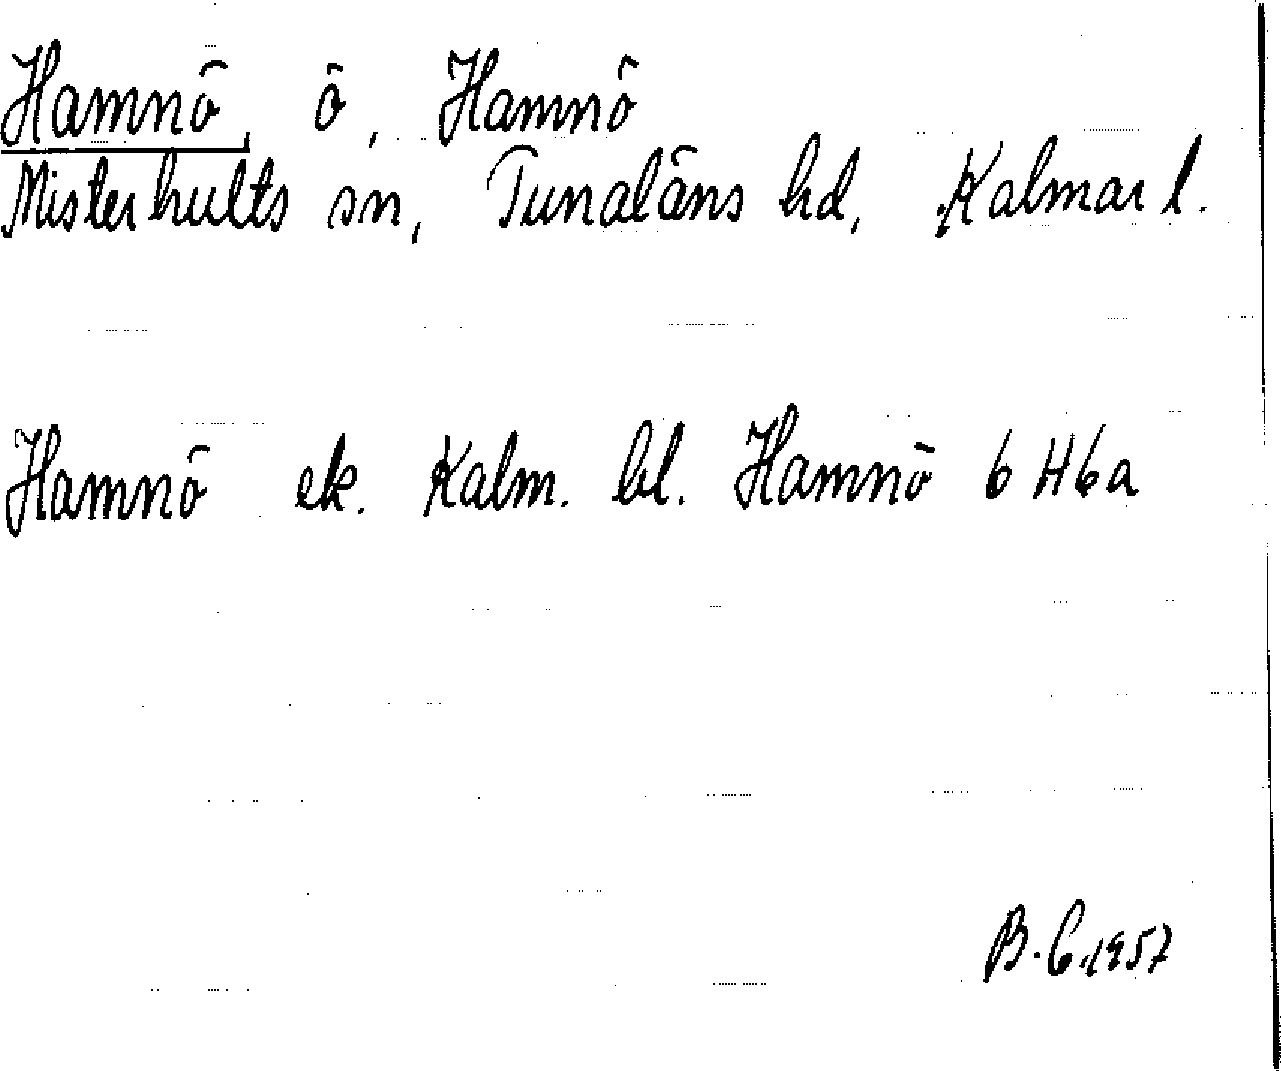 Hamnö, ö, Hamnö
Misterhults sn, Tunaläns hd, Kalmar l.
Hamnö ek. Kalm. bl. Hamnö 6 H6a
B. C. 1957